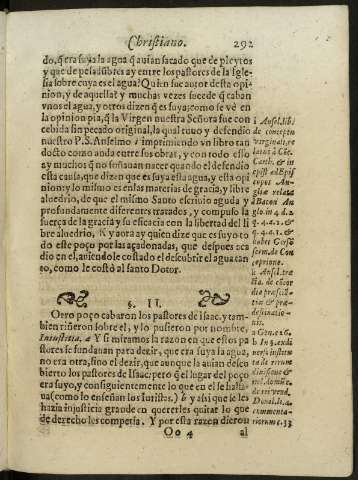 Christiano. 292
do, q̃ era suya la agua q̃ auian sacado que de pleytos
y que de pesadũbres ay entre los pastores de la Igle-
sia sobre cuya es el agua? Quien fue autor desta opi-
nion; y de aquella? y muchas vezes sucede q̃ caban
vnos el agua, y otros dizen q̃ es suya; como se vè en
la opinion pia, q̃ la Virgen nuestra Señora fue con
cebida sin pecado original, la qual touo y defendio
nuestro P.S. Anselmo i imprimiendo vn libro tan
docto como anda entre sus obras, y con todo esso
ay muchos q̃ no soñauan nacer quando el defendio
esta causa, que dizen que es suya esta agua, y esta opi
nion: y lo mismo es en las materias de gracia, y libre
aluedrio, de que el mismo Santo escriuio aguda y
profundamente diferentes tratados, y compuso la
fuerça de la gracia y su eficacia con la libertad del li
bre aluedrio. K y aora ay quien dize que es suyo to
do este poço por las açadonadas, que despues aca
dio en el, auiendole costado el descubrir el agua can
to, como le costò al santo Dotor.
§. II.
Otro poço cabaron los pastores de Isaac, y tam-
bien riñeron sobre el, y lo pusieron por nombre,
Inimicitia. a Y si miramos la razon en que estos pa
stores se fundauan para dezir, que era suya la agua,
no era otra, sino el dezir, que aunque la auian descu
bierto los pastores de Isaac; pero q̃ el lugar del poço
era suyo, y consiguientemente lo que en el se halla-
ua (como lo enseñan los Iuristas.) b y assi que se les
hazia injusticia grande en quererles quitar lo que
de derecho les competia. Y por esta razon dieron
Oo 4 al
i Ansel. lib.
de conceptu
virginali, re
latus à Che.
Canth. & in
epist. ad Epis
copos An-
gliæ relata
à Baconi An
glo. in 4. d. 2
q. 4. a. 1. &
q. 4. a. 3. &
habet Gersõ
serm. de Con
ceptione.
k Ansel. tra
cta. de concor
dia præscien
tiæ & præ-
destinatio-
nis.
a Gen. 26.
b In §.